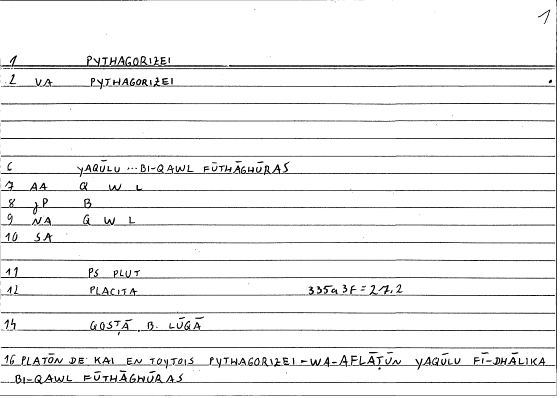 1
1 PYTHAGORIZEI
2 VA PYTHAGORIZEI
6 YAQŪLU ... BI-QAWL FŪTHĀGHŪRAS
7 AA Q W L
8 JP B
9 NA Q W L
10 SA
11 PS PLUT
12 PLACITA 335a 3f = 27,2
15 QOSṬĀ B. LŪQĀ
16 PLATŌN DE KAI EN TOYTOIS PYTHAGORIZEI - WA-AFLĀṬŪN YAQŪLU FĪ-DHĀLIKA
BI-QAWL FŪTHĀGHŪRAS